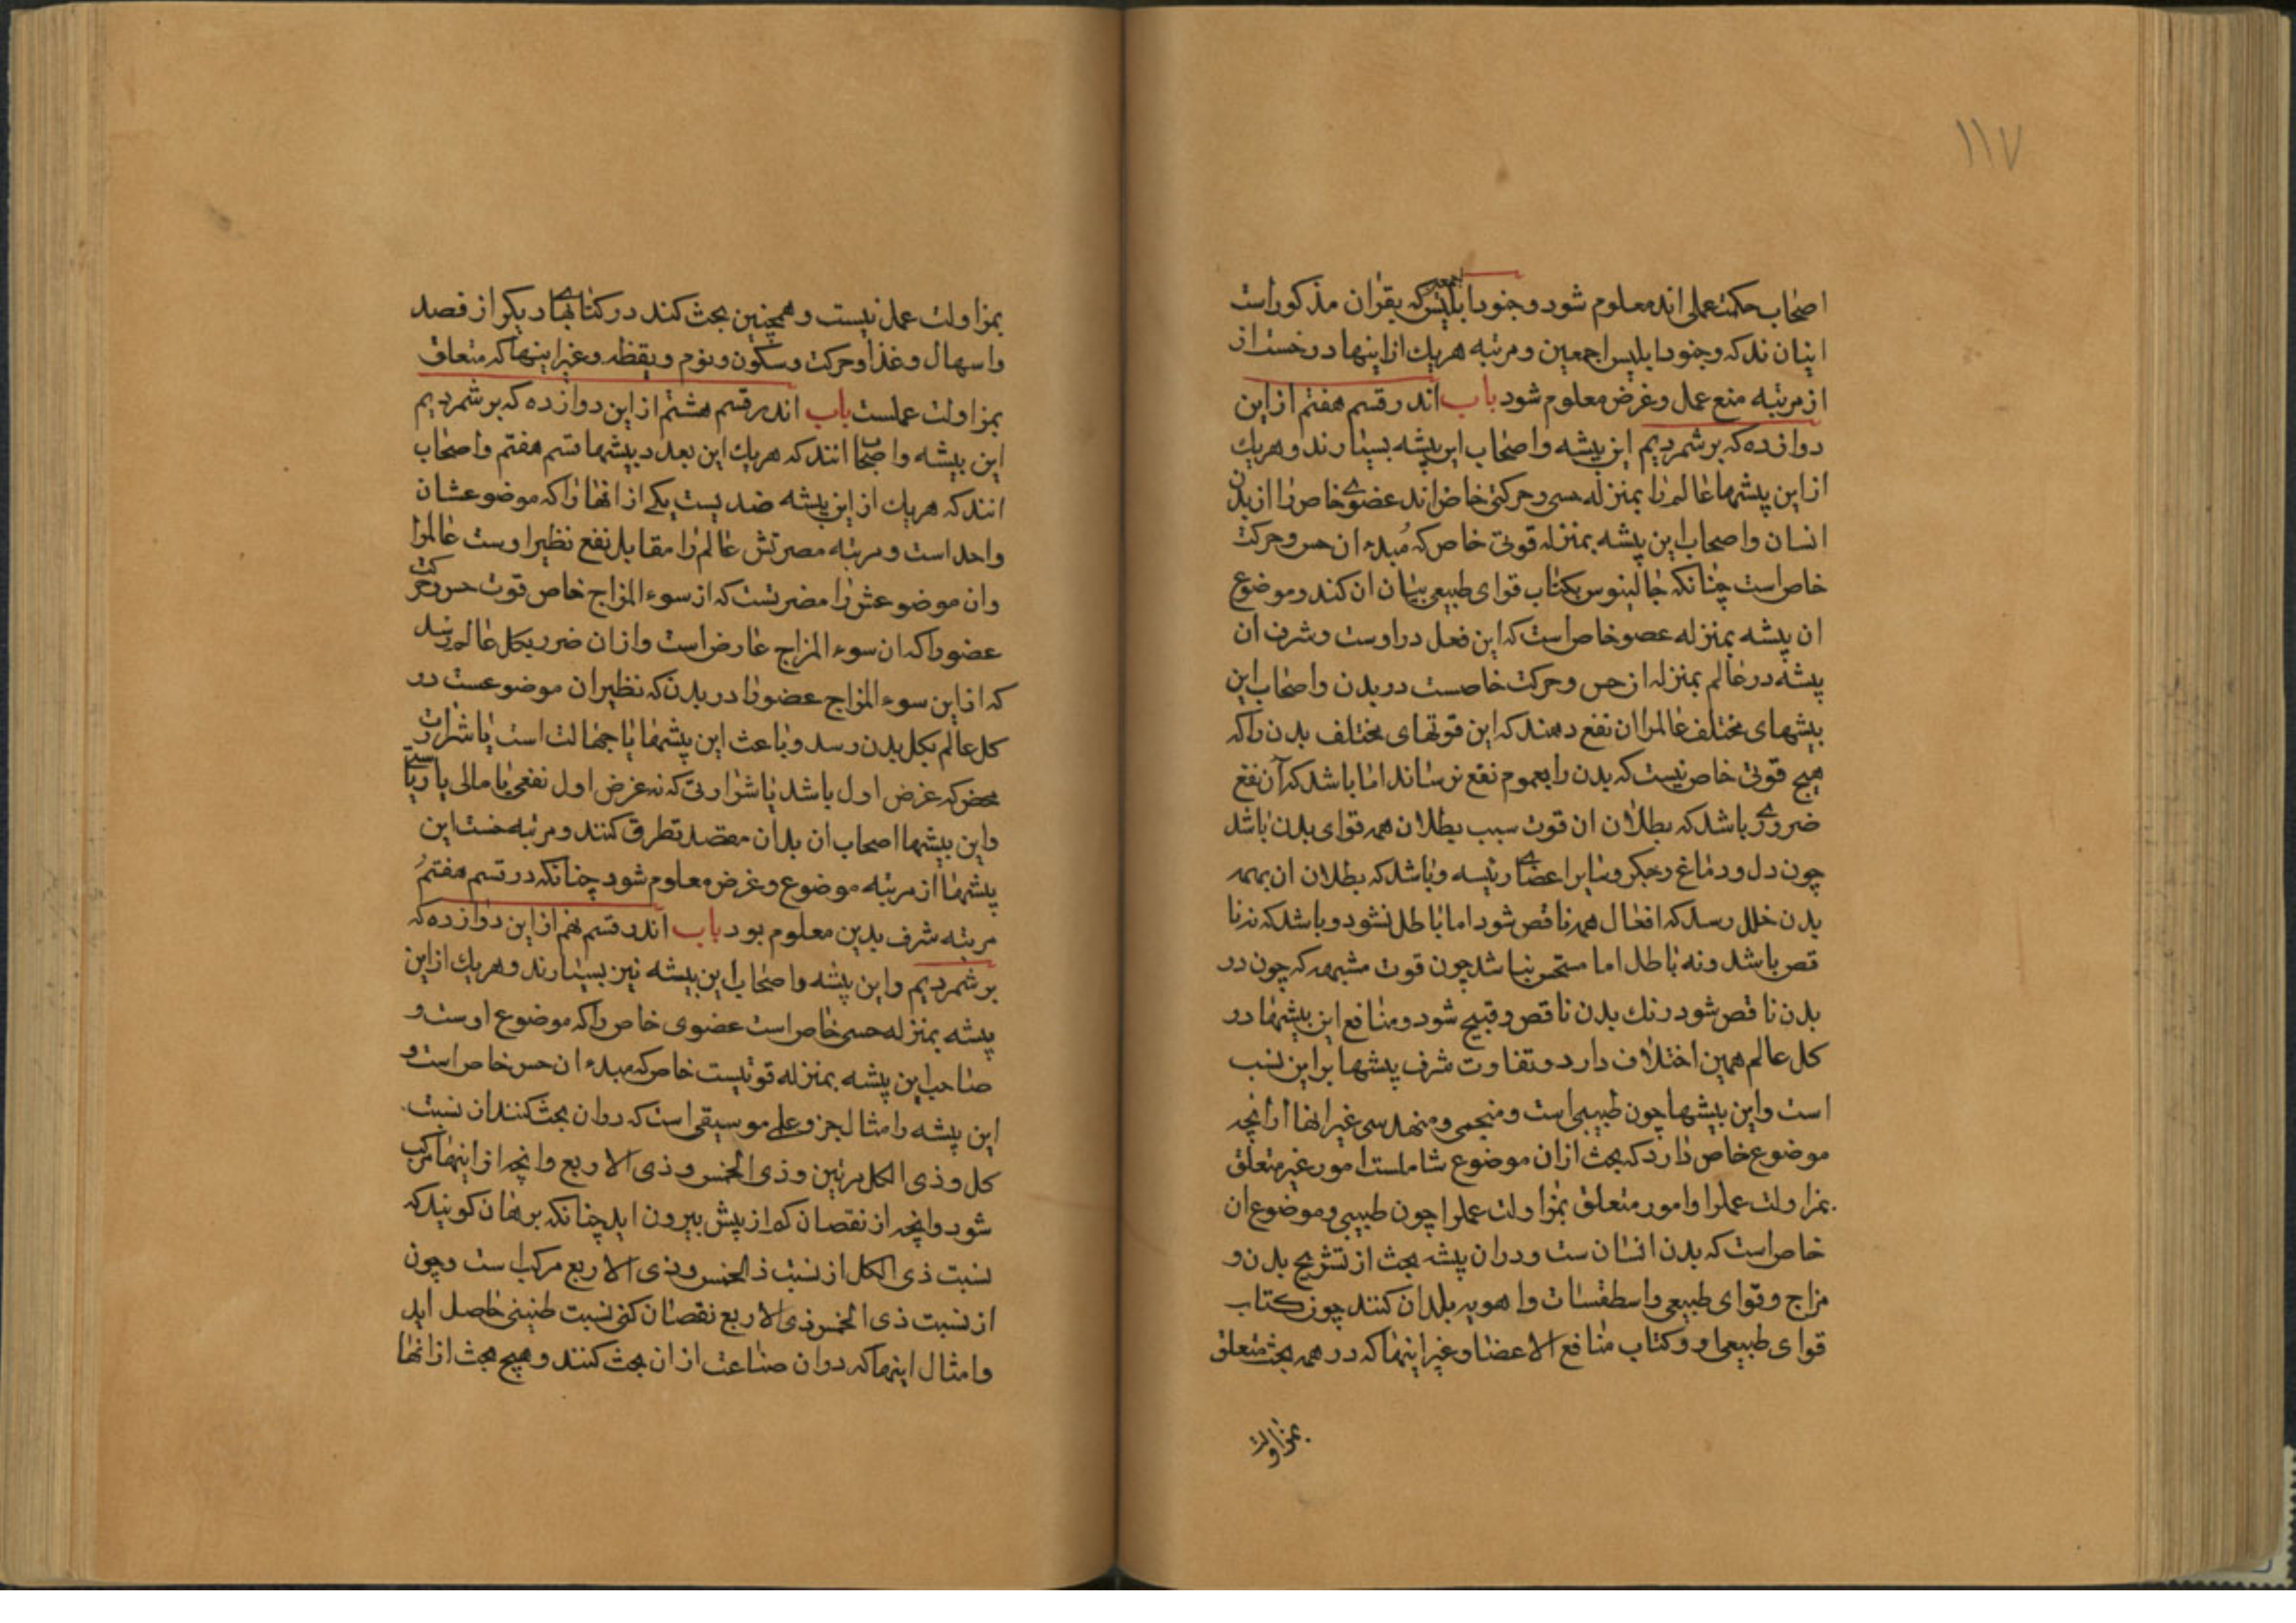 ۱۱۷
اصحاب حکمت عملی اند معلوم شود و جنود ابلیس که بقران مذکور است
اینان ند که و جنود ابلیس اجمعین و مرتبه هریك از اینها در خست از
از مرتبه منع عمل و غرض معلوم شود باب اندر قسم هفتم از این
دوازده که برشمردیم این پیشه و اصحاب این پیشه بسیارند و هریك
از این پیشها عالم را بمنزله حسی و حرکتی خاص اند عضوی خاص را از بدن
انسان و اصحاب این پیشه بمنزله قوتی خاص که مبدء ان حس و حرکت
خاص است چنانکه جالینوس بکتاب قوای طبیعی بیان ان کند و موضوع
ان پیشه بمنزله عضو خاص است که این فعل در اوست و شرف ان
پیشه در عالم بمنزله از حس و حرکت خاصست در بدن و اصحاب این
پیشهای مختلف عالم را ان نفع دهند که این قوتهای مختلف بدن را که
هیچ قوتی خاص نیست که بدن را بعموم نفع نرساند اما باشد که آن نفع
ضروری باشد که بطلان ان قوت سبب بطلان همه قوای بدن باشد
چون دل و دماغ و جگر و سایر اعضای رئیسه و باشد که بطلان ان بهمه
بدن خلل رسد که افعال همه ناقص شود اما باطل نشود و باشد که نه نا
قص باشد و نه باطل اما مستحسن نباشد چون قوت مشبهه که چون در
بدن ناقص شود رنك بدن ناقص و قبیح شود و منافع این پیشها در
کل عالم همین اختلاف دارد و تفاوت شرف پیشها براین نسب
است و این پیشها چون طبیبی است و منجمی و مهندسی غیر انها از انچه
موضوع خاص دارد که بحث از ان موضوع شاملست امور غیر متعلق
بمزاولت عمل را و امور متعلق بمزاولت عمل را چون طبیبی و موضوع ان
خاص است که بدن انسان ست و دران پیشه بحث از تشریح بدن و
مزاج و قوای طبیعی و اسطقسات و اهویه بلدان کنند چون کتاب
قوای طبیعی و و کتاب منافع الاعضا و غیر اینها که در همه بحث متعلق
بمزاولت
بمزاولت عمل نیست و همچنین بحث کند در کتابهای دیکر از فصد
و اسهال و غذا و حرکت و سکون و نوم و یقظه و غیر اینها که متعلق
بمزاولت عملست باب اندر قسم هشتم از این دوازده که برشمردیم
این پیشه و اصحاب انند که هریك این بعد د پیشها قسم هفتم و اصحاب
انند که هریك از این پیشه ضد یست یکی از انها را که موضوعشان
واحد است و مرتبه مضرتش عالم را مقابل نفع نظیر اوست عالم را
وان موضوعش را مضرتست که از سوء المزاج خاص قوت حس و حرکت
عضو را که ان سوء المزاج عارض است و از ان ضرر بکل عالم رسد
که از این سوء المزاج عضو را در بدن که نظیر ان موضوعست در
کل عالم بکل بدن رسد و باعث این پیشها یا جهالت است یا شرارت
محض که غرض اول باشد یا شرارتی که نه غرض اول نفعی با مالی یا ریاستی
و این پیشها اصحاب ان بدان مقصد تطرق کنند و مرتبه خست این
پیشها از مرتبه موضوع و غرض معلوم شود چنانکه در قسم هفتم
مرتبه شرف بدین معلوم بود باب اندر قسم نهم از این دوازده که
برشمردیم و این پیشه و اصحاب این پیشه نیز بسیارند و هریك از این
پیشه بمنزله حسی خاص است عضوی خاص را که موضوع اوست و
صاحب این پیشه بمنزله قوتیست خاص که مبدء ان حس خاص است و
این پیشه را مثال جزو علی موسیقی است که دران بحث کنند از نسبت
کل و ذی الکل مرتین و ذی الخمس و ذی الاربع و انچه از اینها مرکب
شود و انچه از نقصان کم از بیش بیرون اید چنانکه برهان کویند که
نسبت ذی الکل از نسبت ذ الخمس و ذی الاربع مرکب است و چون
از نسبت ذی الخمس ذی الاربع نقصان کنی نسبت طنینی حاصل اید
و امثال اینها که دران صناعت از ان بحث کنند و هیچ بحث از انها